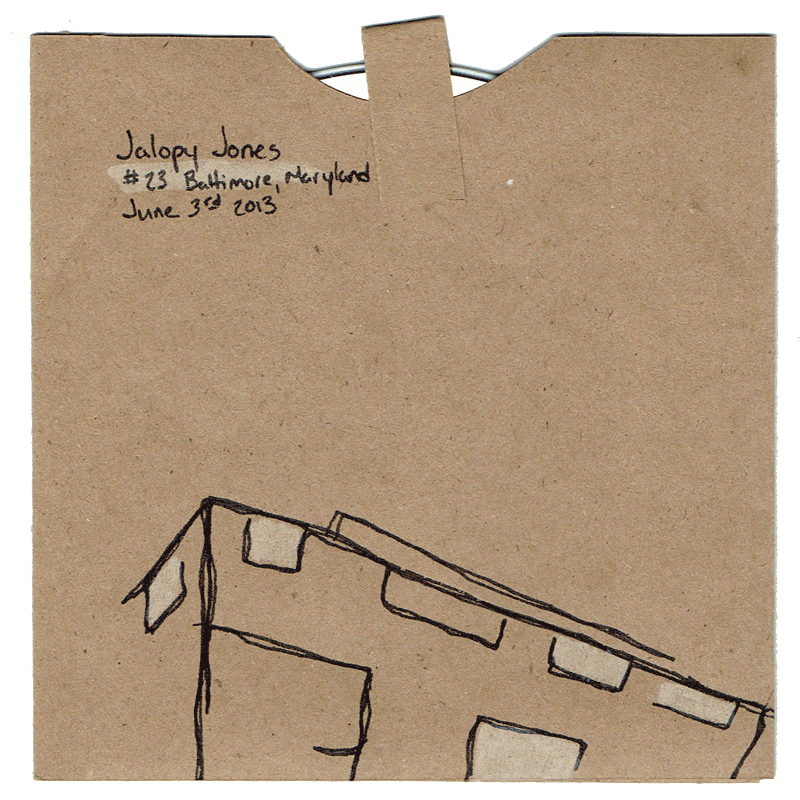 Jalopy Jones
#23 Baltimore, Maryland
June 3rd 2013